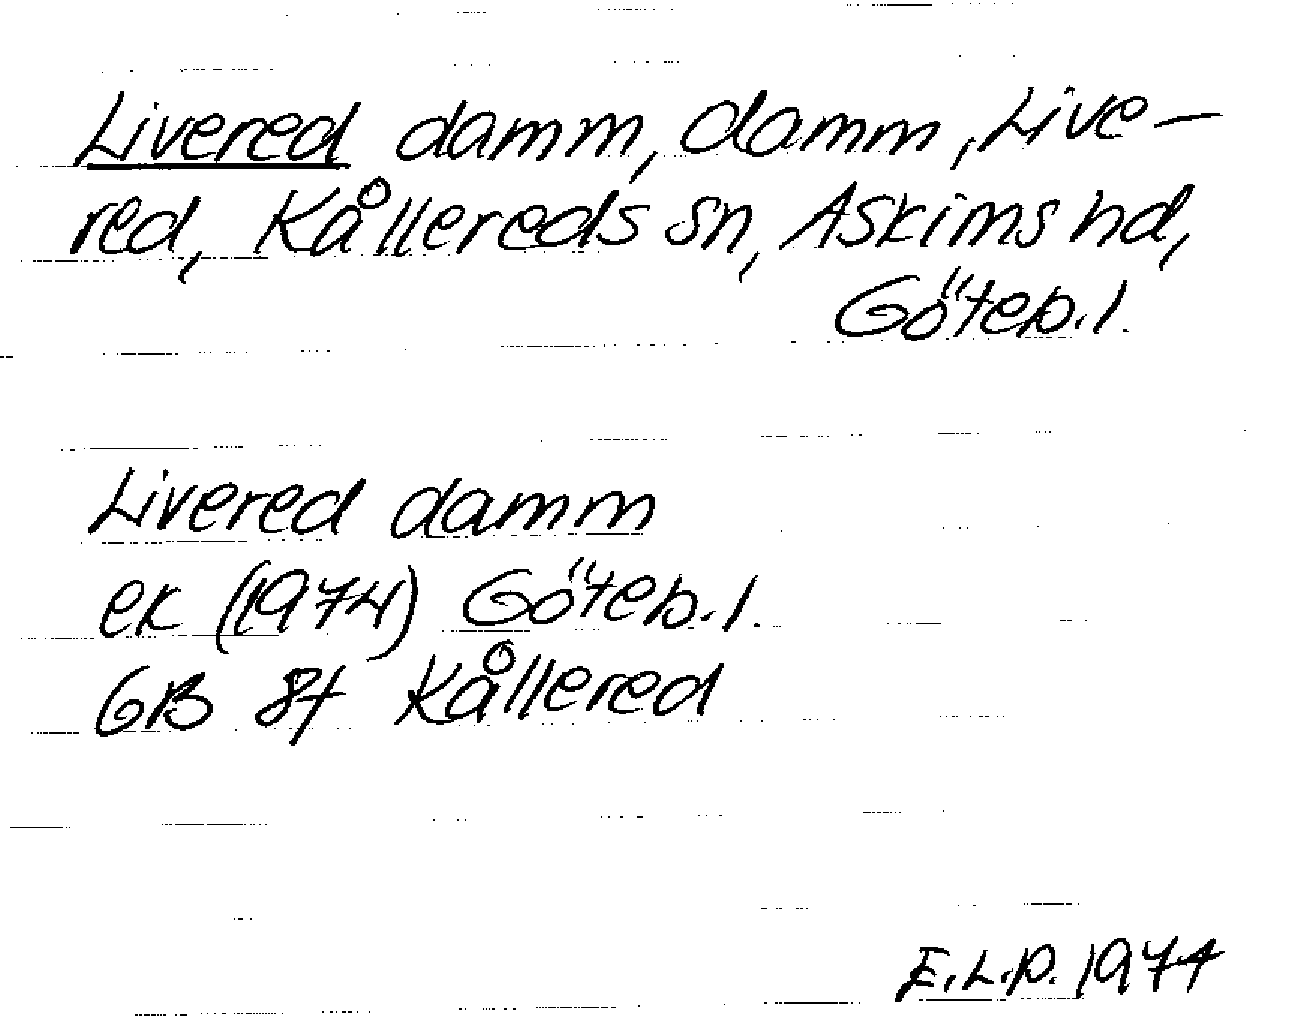 Livered damm, damm, Live-
red, Kållereds sn, Askims hd,
Göteb.l.
Livered damm
ek (1974) Göteb.l.
GB 8f Kållered
E.L.P. 1974